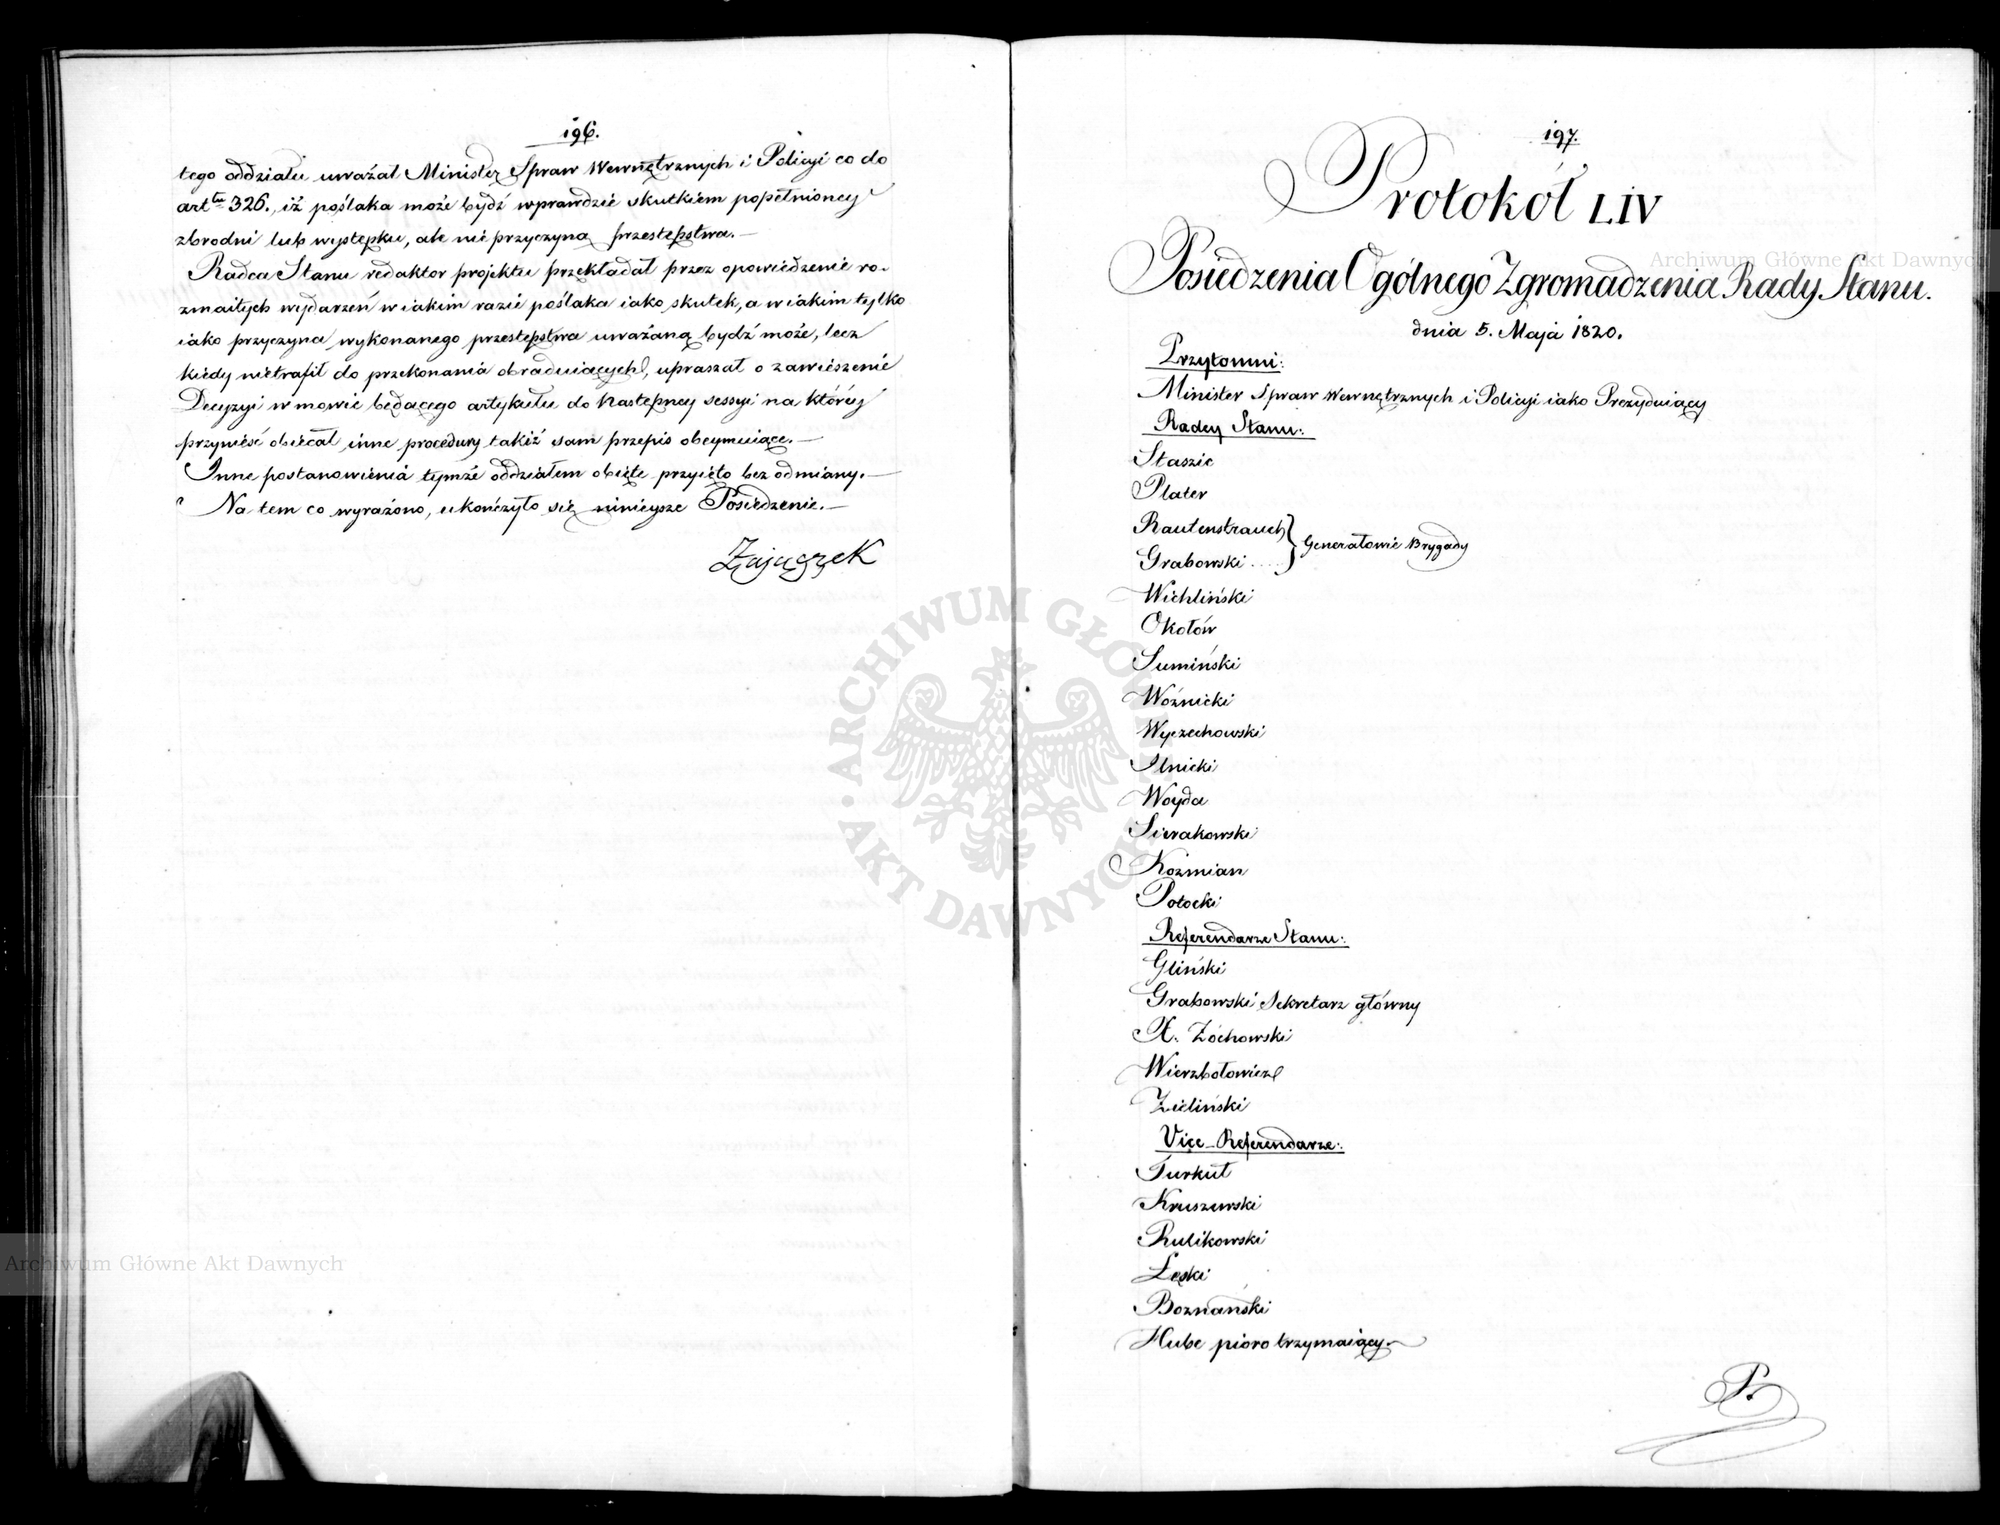 196.
tego oddziału uważał Minister Spraw Wewnętrznych i Policyi co do
artłu 326., iż poślaka może bydź wprawdzie skutkiem popełnioney
zbrodni lub występku, ale nie przyczyną przestępstwa.—
Radca Stanu redaktor projektu przekładał przez opowiedzenie ro-
zmaitych wydarzeń w iakim razie poślaka iako skutek, a w iakim tylko
iako przyczyna wykonanego przestępstwa uważaną bydź może, lecz
kiedy nietrafił do przekonania obraduiących, upraszał o zawieszenie
Decyzyi w mowie będącego artykułu do następney sessyi na którey
przynieść obiecał inne procedury takiż sam przepis obeymuiące.—
Inne postanowienia tymże oddziałem obięte przyięto bez odmiany.—
Na tem co wyrażono, ukończyło się ninieysze Posiedzenie.—
Zajączek
197.
Protokół LIV
Posiedzenia Ogólnego Zgromadzenia Rady Stanu.
dnia 5. Maja 1820.
Przytomni:
Minister Spraw Wewnętrznych i Policyi iako Prezyduiący
Radcy Stanu:
Staszic
Plater
Rautenstrauch } Generałowie Brygady
Grabowski....
Wichliński
Okołów
Sumiński
Woźnicki
Wyczechowski
Ilnicki
Woyda
Sierakowski
Koźmian
Potocki
Referendarze Stanu:
Gliński
Grabowski Sekretarz główny
X. Zóchowski
Wierzbołowicz
Zieliński
Vice-Referendarze:
Turkuł
Kruszewski
Rulikowski
Łęski
Boznański
Hube pioro trzymaiący.
P.
Archiwum Główne Akt Dawnych
Archiwum Główne Akt Dawnych
ARCHIWUM GŁÓWNE AKT DAWNYCH